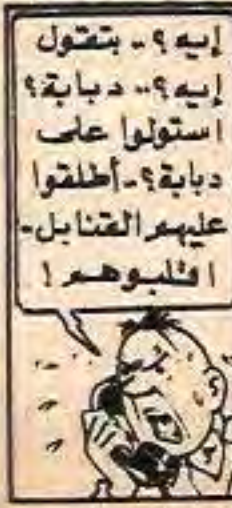 إيه؟.. بتقول
إيه؟.. دبابة؟
استولوا على
دبابة؟.. أطلقوا
عليهم القنابل..
اقلبوهم!